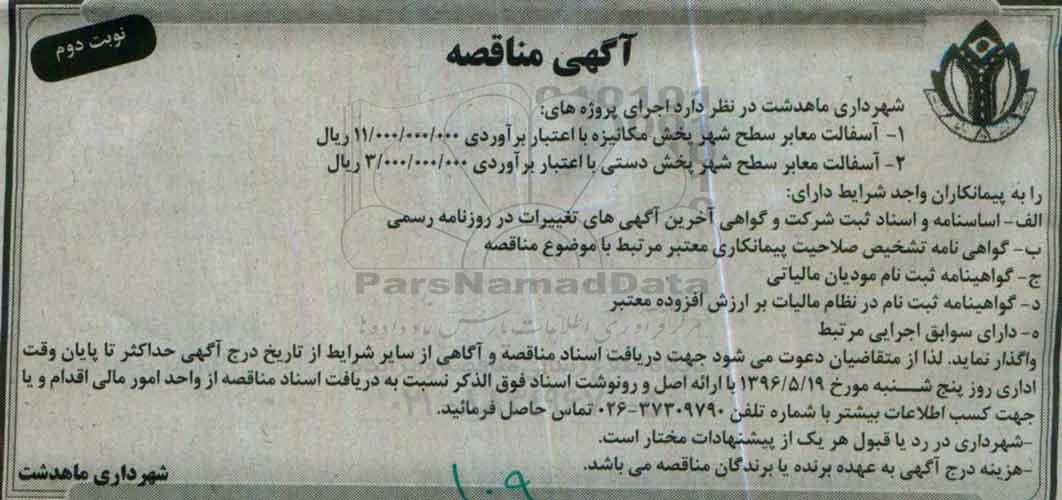 نوبت دوم
آگهی مناقصه
شهرداری ماهدشت در نظر دارد اجرای پروژه های:
۱- آسفالت معابر سطح شهر پخش مکانیزه با اعتبار برآوردی ۱۱/۰۰۰/۰۰۰/۰۰۰ ریال
۲- آسفالت معابر سطح شهر پخش دستی با اعتبار برآوردی ۳/۰۰۰/۰۰۰/۰۰۰ ریال
را به پیمانکاران واجد شرایط دارای:
الف- اساسنامه و اسناد ثبت شرکت و گواهی آخرین آگهی های تغییرات در روزنامه رسمی
ب- گواهی نامه تشخیص صلاحیت پیمانکاری معتبر مرتبط با موضوع مناقصه
ج- گواهینامه ثبت نام مودیان مالیاتی
ParsNamadData
د- گواهینامه ثبت نام در نظام مالیات بر ارزش افزوده معتبر
مرکز فرآوری اطلاعات پارس نماد داده ها
ه- دارای سوابق اجرایی مرتبط
واگذار نماید. لذا از متقاضیان دعوت می شود جهت دریافت اسناد مناقصه و آگاهی از سایر شرایط از تاریخ درج آگهی حداکثر تا پایان وقت
اداری روز پنج شنبه مورخ ۱۳۹۶/۵/۱۹ با ارائه اصل و رونوشت اسناد فوق الذکر نسبت به دریافت اسناد مناقصه از واحد امور مالی اقدام و یا
جهت کسب اطلاعات بیشتر با شماره تلفن ۳۷۳۰۹۷۹۰-۰۲۶ تماس حاصل فرمائید.
-شهرداری در رد یا قبول هر یک از پیشنهادات مختار است.
-هزینه درج آگهی به عهده برنده یا برندگان مناقصه می باشد.
شهرداری ماهدشت
۱۰۹